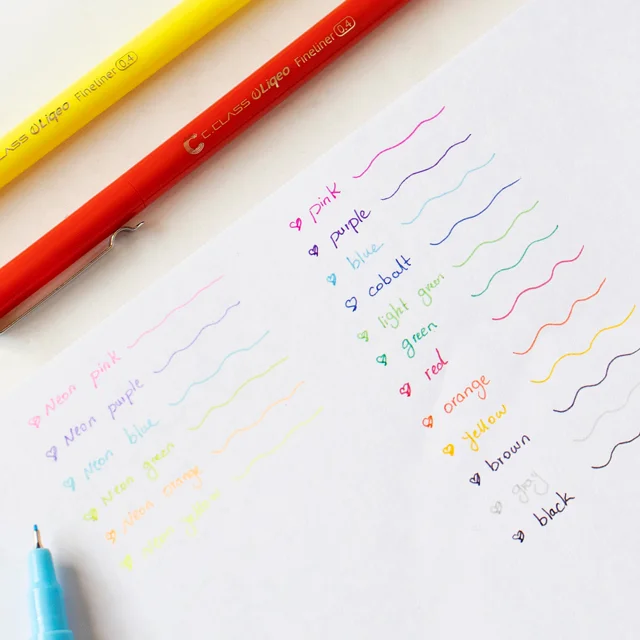 CLASS Liqeo Fineliner 0.4
C.CLASS Liqeo Fineliner 0.4
pink
purple
blue
cobalt
light green
green
red
orange
yellow
brown
gray
black
Neon pink
Neon purple
Neon blue
Neon green
Neon orange
Neon yellow